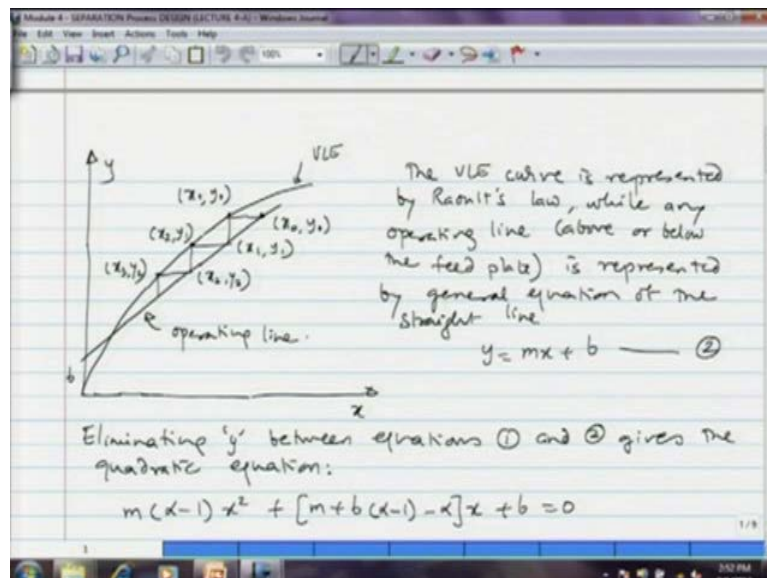 Module 4 - SEPARATION Process DESIGN (LECTURE 4-A) - Windows Journal
File Edit View Insert Actions Tools Help
100%
y
VLE
(x1, y0)
(x0, y0)
(x2, y1)
(x1, y1)
(x3, y2)
(x2, y2)
operating line.
b
x
The VLE curve is represented
by Raoult's law, while any
operating line (above or below
the feed plate) is represented
by general equation of the
straight line
y = mx + b —— ②
Eliminating 'y' between equations ① and ② gives the
quadratic equation:
m(α-1) x² + [m+b(α-1)-α]x + b = 0
1/9
1
2:52 PM